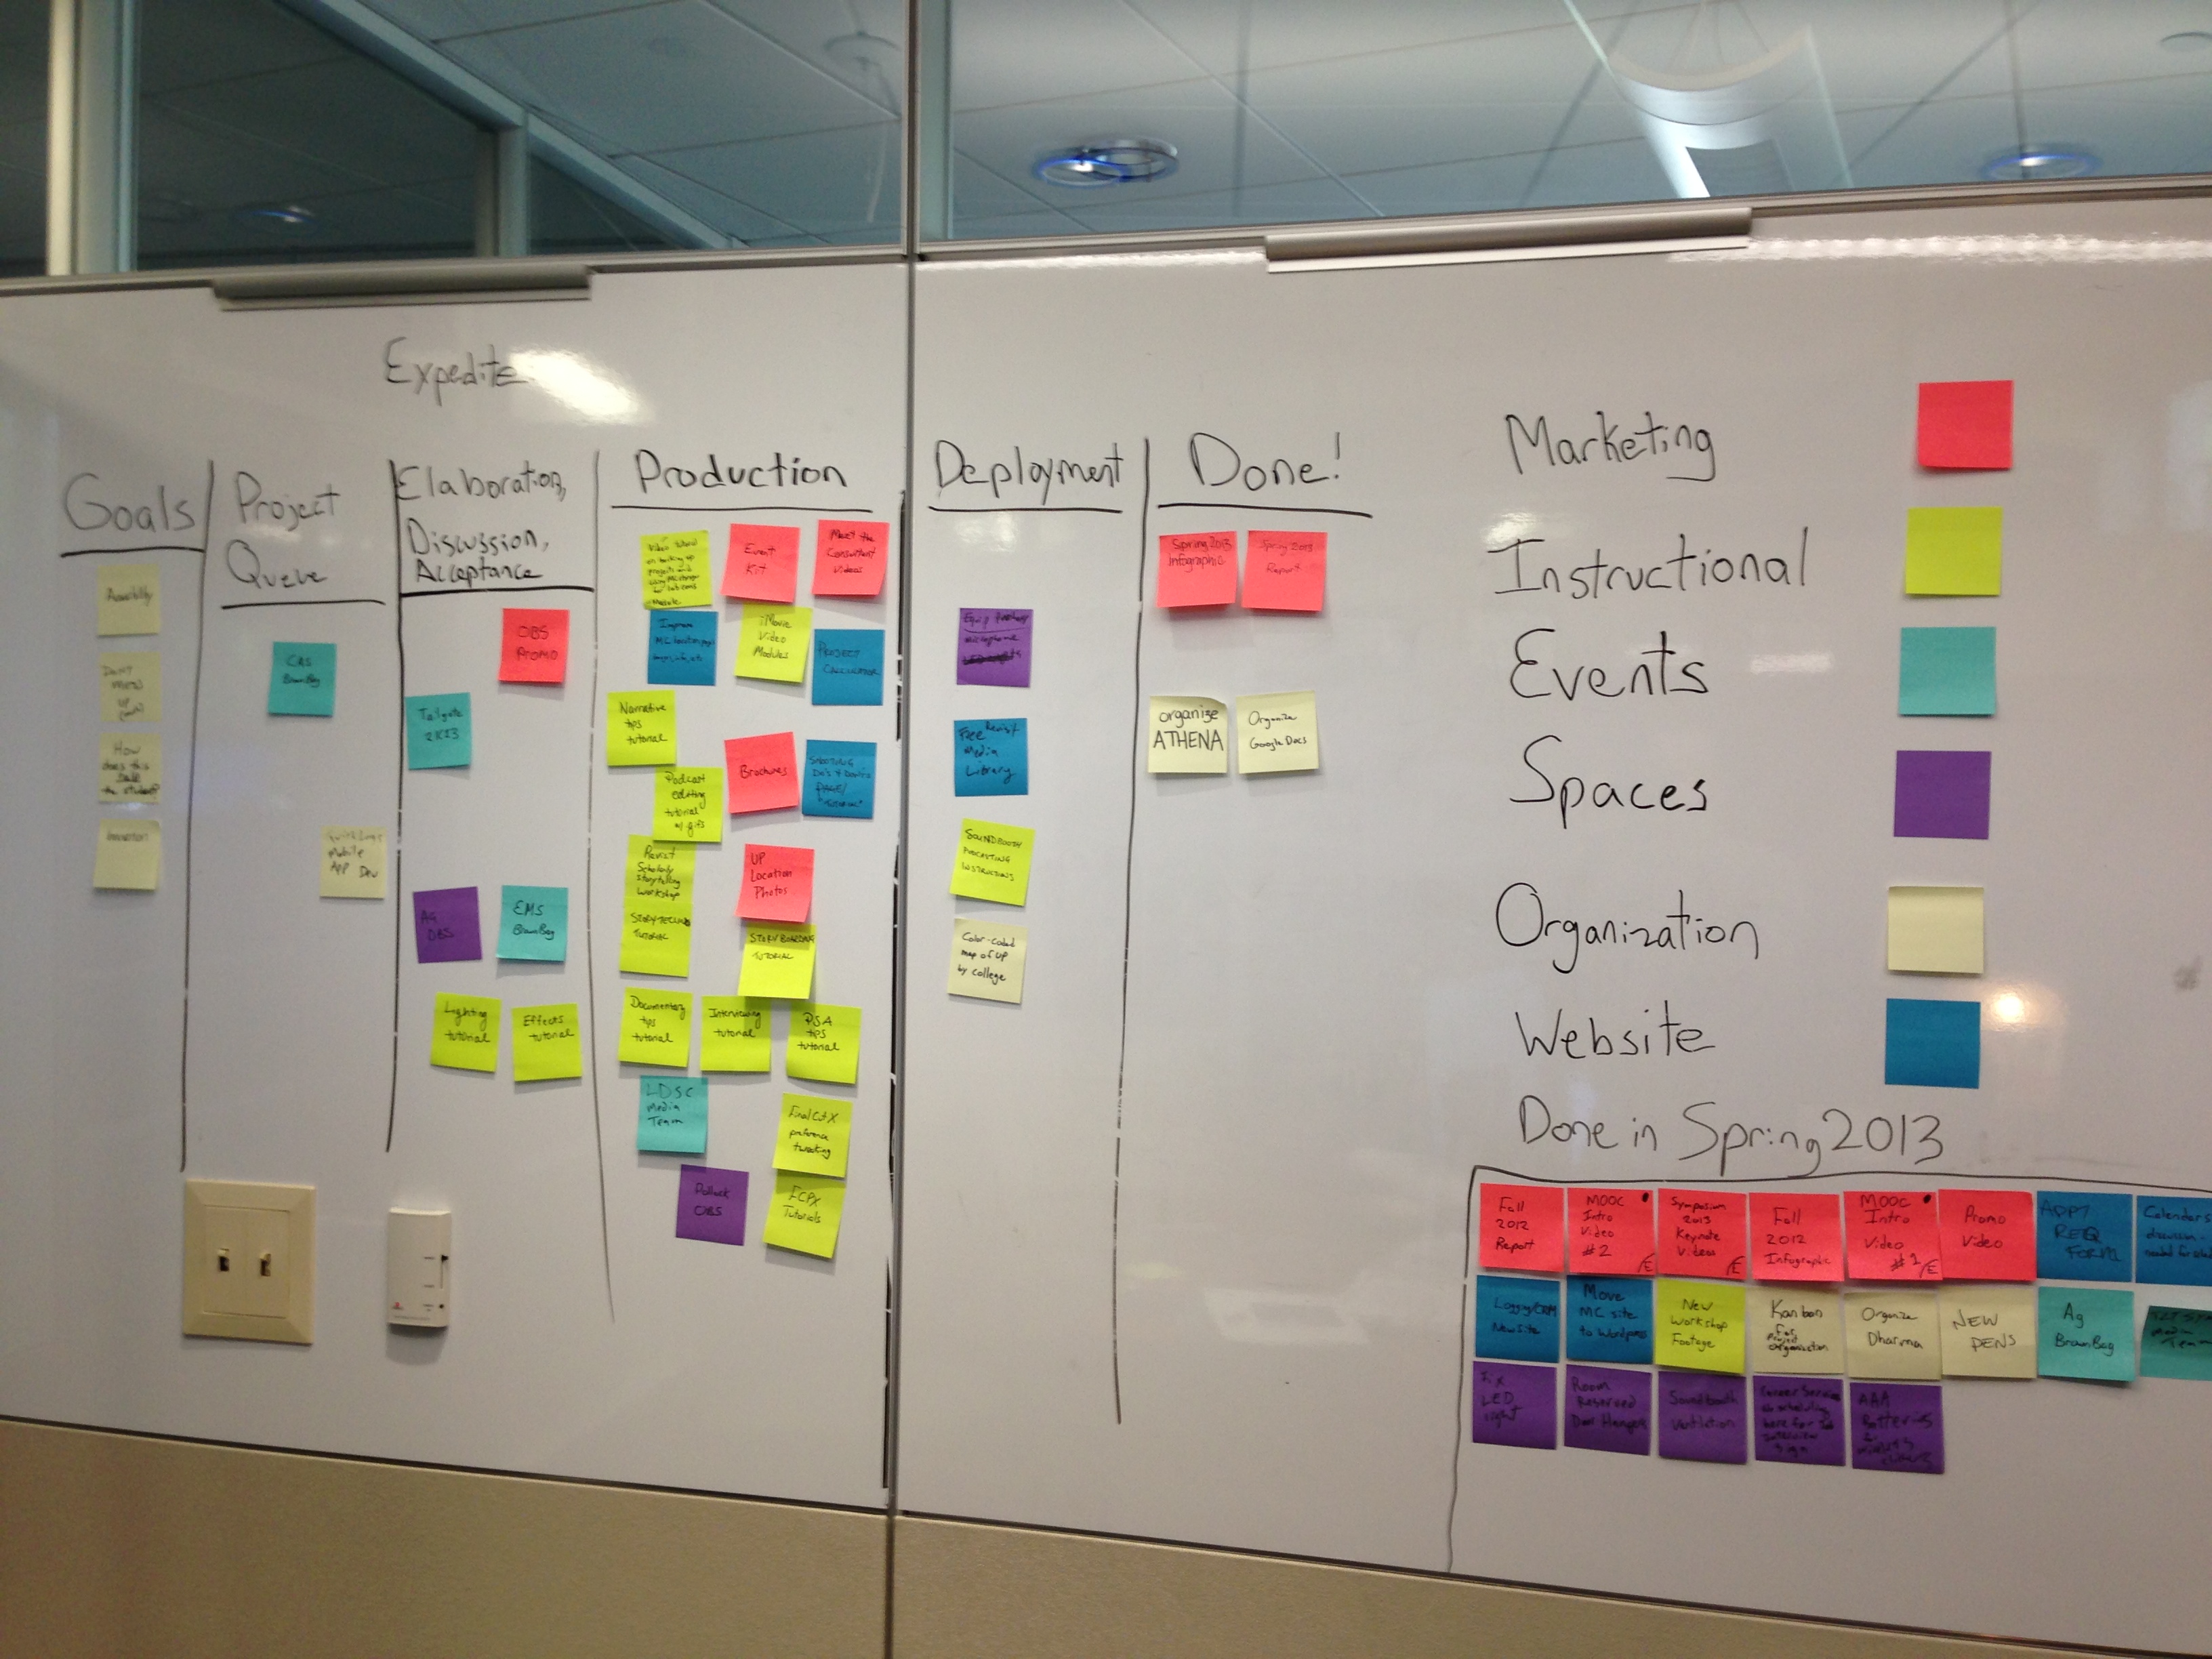 Expedite
Goals
Accessibility
Don't
mess
up
How
does this
the student?
Innovation
Project
Queue
CAS
BrownBag
Mobile
App Dev
Elaboration,
Discussion,
Acceptance
OBS
PROMO
Tailgate
2K13
AG
OBS
EMS
BrownBag
Lighting
tutorial
Effects
tutorial
Production
Event
Kit
Meet the
Consultant
Videos
Improve
iMovie
Video
Modules
PROJECT
CALCULATOR
Narrative
tips
tutorial
Podcast
editing
tutorial
w/ gifs
Brochures
SHOOTING
Do's & Don'ts
"TUTORIAL"
Revisit
Scholarly
Storytelling
workshop
TUTORIAL
UP
Location
Photos
STORYBOARDING
TUTORIAL
Documentary
tips
tutorial
Interviewing
tutorial
PSA
tips
tutorial
LDSC
Media
Team
Final Cut X
preference
tweaking
Pollock
OBS
FCPX
Tutorials
Deployment
microphone
Free
Media
Library
SOUNDBOOTH
PODCASTING
INSTRUCTIONS
Color-coded
map of UP
by college
Done!
Spring 2013
Infographic
Spring 2013
Report
organize
ATHENA
Organize
Google Docs
Marketing
Instructional
Events
Spaces
Organization
Website
Done in Spring 2013
Fall
2012
Report
MOOC
Intro
Video
#2
E
Symposium
2013
Keynote
Videos
E
Fall
2012
Infographic
MOOC
Intro
Video
#1
E
Promo
Video
APPT
REQ
FORM
Calendars
discussion-
needed for
Logging/CRM
New Site
Move
MC site
to Wordpress
New
Workshop
Footage
Kanban
for
Project
organization
Organize
Dharma
NEW
PENS
Ag
BrownBag
Media
Team
Fix
LED
light
Room
Reserved
Door Hangers
Soundbooth
Ventilation
Career Services
scheduling
here for
interview
sign
AAA
Batteries